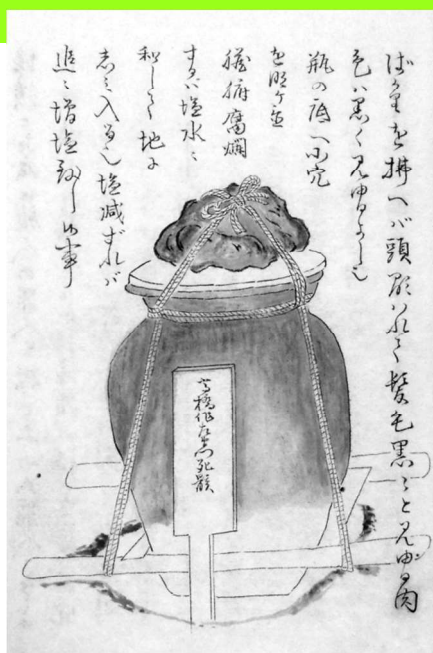 ばかりを拂へバ頭顕ハれて髪毛黒々と見ゆる肉
色ハ黒く見ゆるよし也
瓶の底へ小穴
を明ケ置
臓腑腐爛
すれハ塩水ニ
和して地に
しミ入る也塩減ずれバ
追々増塩致し候事
高橋作左衛門死骸